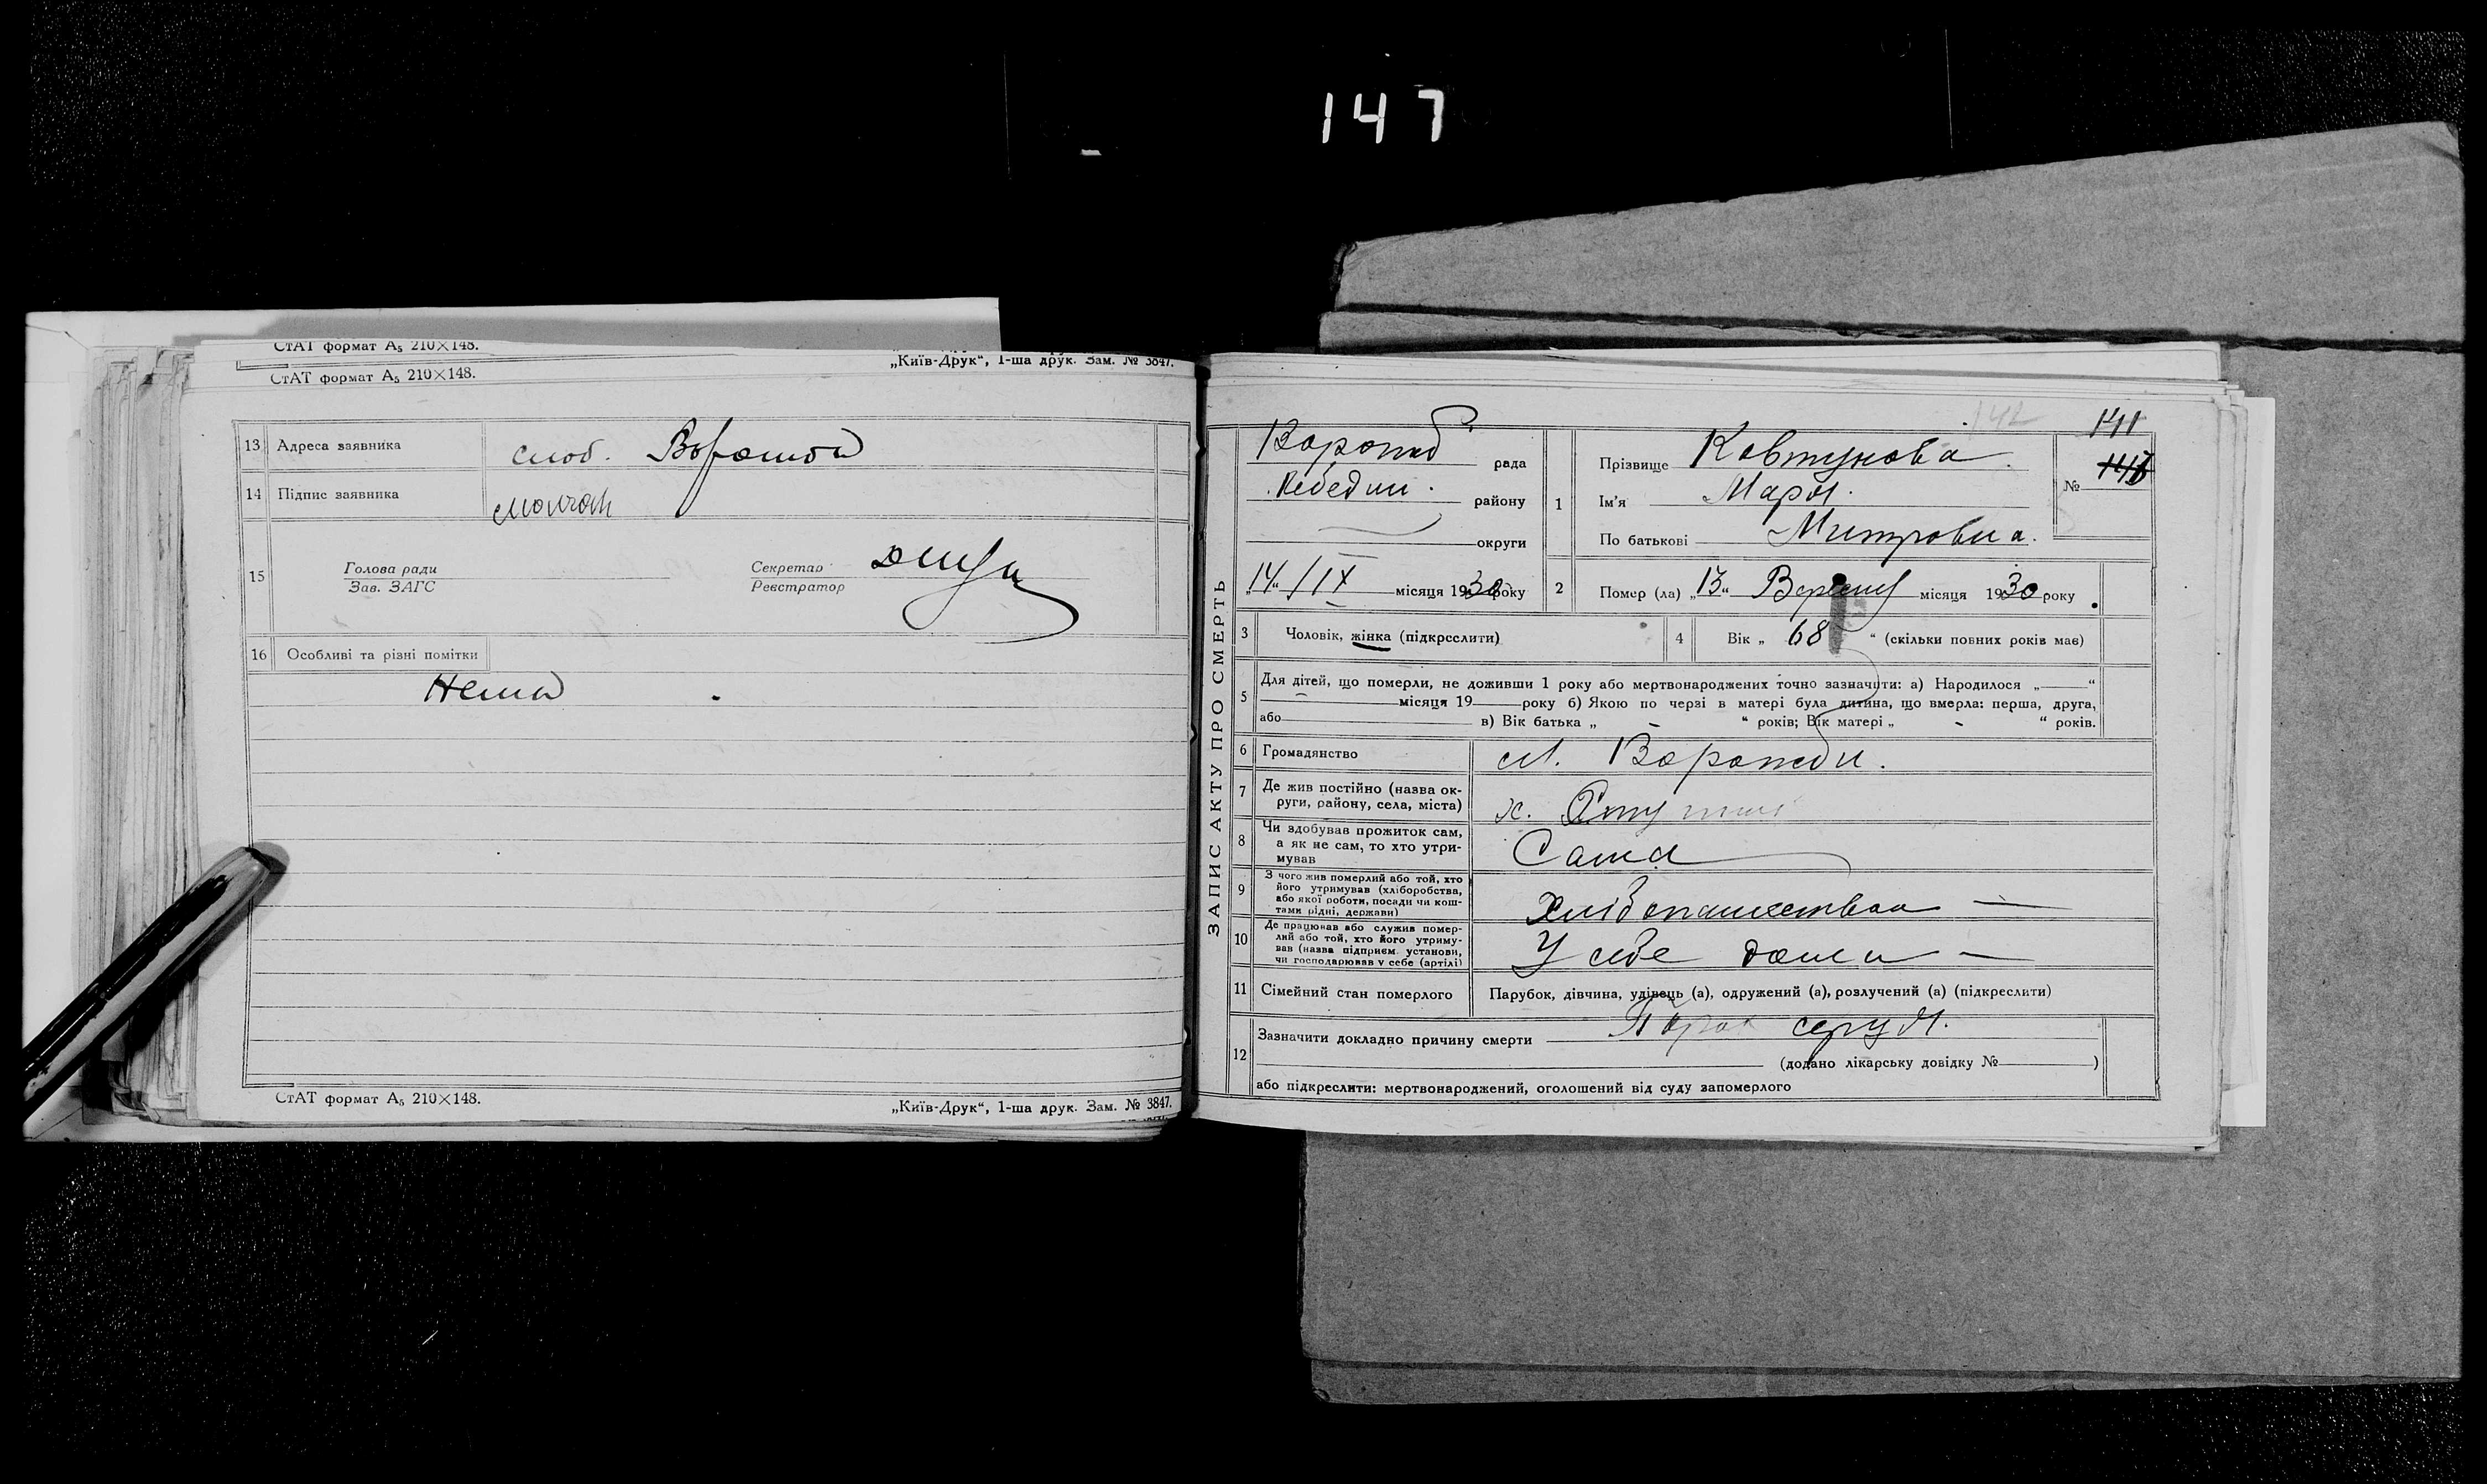 147
СтАТ формат А₅ 210×148.
„Київ-Друк“, 1-ша друк. Зам. № 3847.
СтАТ формат А₅ 210×148.
13 Адреса заявника слоб.
14 Підпис заявника
15 Голова ради Секретар
Зав. ЗАГС Реєстратор
16 Особливі та різні помітки
Нема
СтАТ формат А₅ 210×148.
„Київ-Друк“, 1-ша друк. Зам. № 3847.
ЗАПИС АКТУ ПРО СМЕРТЬ
142 141
рада
Лебедин. району
округи
„14“ /IX місяця 1930 року
1 Прізвище Ковтунова
Ім'я
По батькові Митровна.
№
2 Помер (ла) „13“ місяця 1930 року
3 Чоловік, жінка (підкреслити)
4 Вік „ 68 “ (скільки повних років має)
5 Для дітей, що померли, не доживши 1 року або мертвонароджених точно зазначити: а) Народилося „ “
місяця 19 року б) Якою по черзі в матері була дитина, що вмерла: перша, друга,
або в) Вік батька „ - “ років; Вік матері „ - “ років.
6 Громадянство
7 Де жив постійно (назва ок-
руги, району, села, міста) х.
8 Чи здобував прожиток сам,
а як не сам, то хто утри-
мував Сама
9 З чого жив померлий або той, хто
його утримував (хліборобства,
або якої роботи, посади чи кош-
тами рідні, держави)
10 Де працював або служив помер-
лий або той, хто його утриму-
вав (назва підприєм. установи,
чи господарював у себе (артілі) У себе дома —
11 Сімейний стан померлого Парубок, дівчина, удівець (а), одружений (а), розлучений (а) (підкреслити)
12 Зазначити докладно причину смерти
(додано лікарську довідку № )
або підкреслити: мертвонароджений, оголошений від суду запомерлого